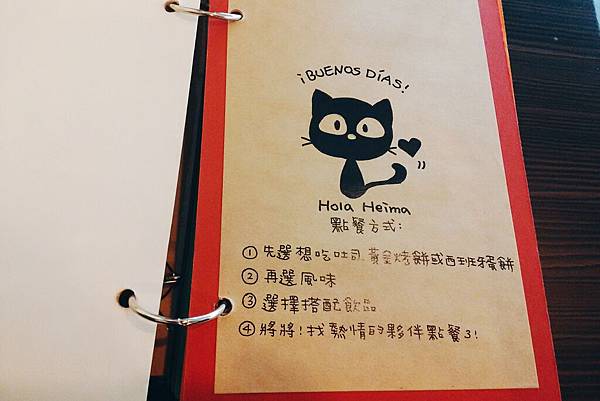 ¡BUENOS DÍAS!
Hola Heima
點餐方式:
① 先選想吃吐司、黃金烤餅或西班牙蛋餅
② 再選風味
③ 選擇搭配飲品
④ 將將!找熱情的夥伴點餐3!